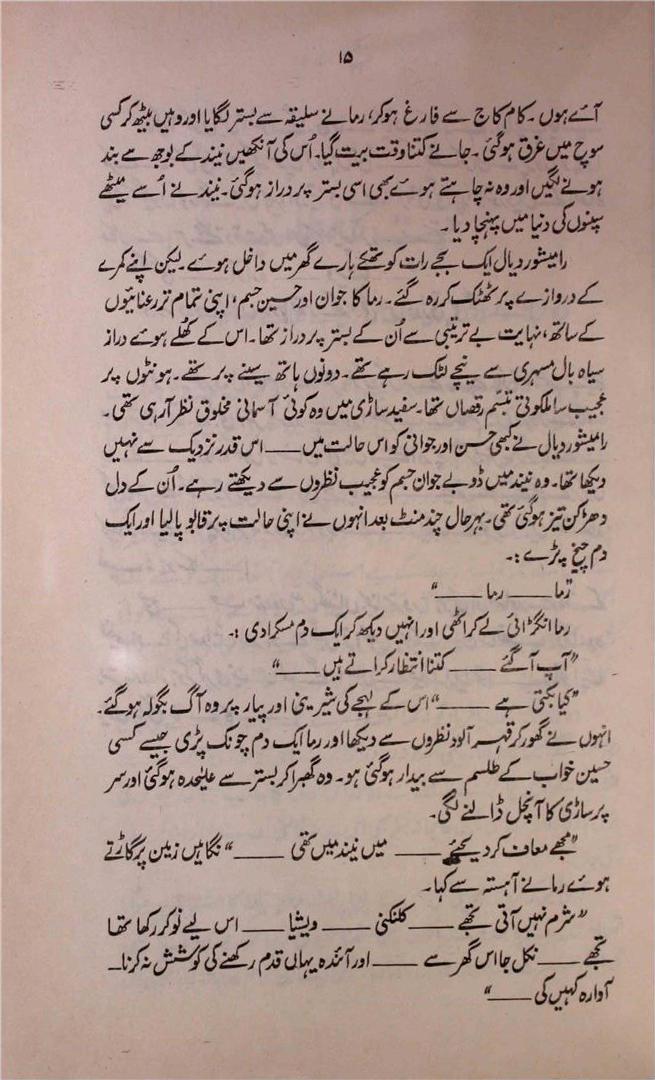 ۱۵
آئے ہوں۔ کام کاج سے فارغ ہوکر، رما نے سلیقہ سے بستر لگایا اور وہیں بیٹھ کر کسی
سوچ میں غرق ہوگئی۔ جانے کتنا وقت بیت گیا۔ اُس کی آنکھیں نیند کے بوجھ سے بند
ہونے لگیں اور وہ نہ چاہتے ہوئے بھی اسی بستر پر دراز ہوگئی۔ نیند نے اُسے میٹھے
سپنوں کی دنیا میں پہنچا دیا۔
رامیشور دیال ایک بجے رات کو تھکے ہارے گھر میں داخل ہوئے۔ لیکن اپنے کمرے
کے دروازے پر ٹھٹک کر رہ گئے۔ رما کا جوان اور حسین جسم، اپنی تمام تر رعنائیوں
کے ساتھ، نہایت بے ترتیبی سے اُن کے بستر پر دراز تھا۔ اس کے کھلے ہوئے دراز
سیاہ بال مسہری سے نیچے لٹک رہے تھے۔ دونوں ہاتھ سینے پر تھے۔ ہونٹوں پر
عجیب سا ملکوتی تبسّم رقصاں تھا۔ سفید ساڑی میں وہ کوئی آسمانی مخلوق نظر آرہی تھی۔
رامیشور دیال نے کبھی حسن اور جوانی کو اس حالت میں ——— اس قدر نزدیک سے نہیں
دیکھا تھا۔ وہ نیند میں ڈوبے جوان جسم کو عجیب نظروں سے دیکھتے رہے۔ اُن کے دل
دھڑکن تیز ہوگئی تھی۔ بہرحال چند منٹ بعد انہوں نے اپنی حالت پر قابو پالیا اور ایک
دم چیخ پڑے :۔
"رما ——— رما ———"
رما انگڑائی لے کر اٹھی اور انہیں دیکھ کر ایک دم مسکرا دی :۔
"آپ آگئے ——— کتنا انتظار کراتے ہیں ———"
"کیا بکتی ہے ———" اس کے لہجے کی شیرینی اور پیار پر وہ آگ بگولہ ہوگئے۔
انہوں نے گھور کر قہر آلود نظروں سے دیکھا اور رما ایک دم چونک پڑی جیسے کسی
حسین خواب کے طلسم سے بیدار ہوگئی ہو۔ وہ گھبرا کر بستر سے علیٰحدہ ہوگئی اور سر
پر ساڑی کا آنچل ڈالنے لگی۔
"مجھے معاف کر دیجئے ——— میں نیند میں تھی ———" نگاہیں زمین پر گاڑتے
ہوئے رما نے آہستہ سے کہا۔
"شرم نہیں آتی تجھے ——— کلنکنی ——— ویشیا ——— اس لیے نوکر رکھا تھا
تجھے ——— نکل جا اس گھر سے ——— اور آئندہ یہاں قدم رکھنے کی کوشش نہ کرنا——
آوارہ کہیں کی ———"